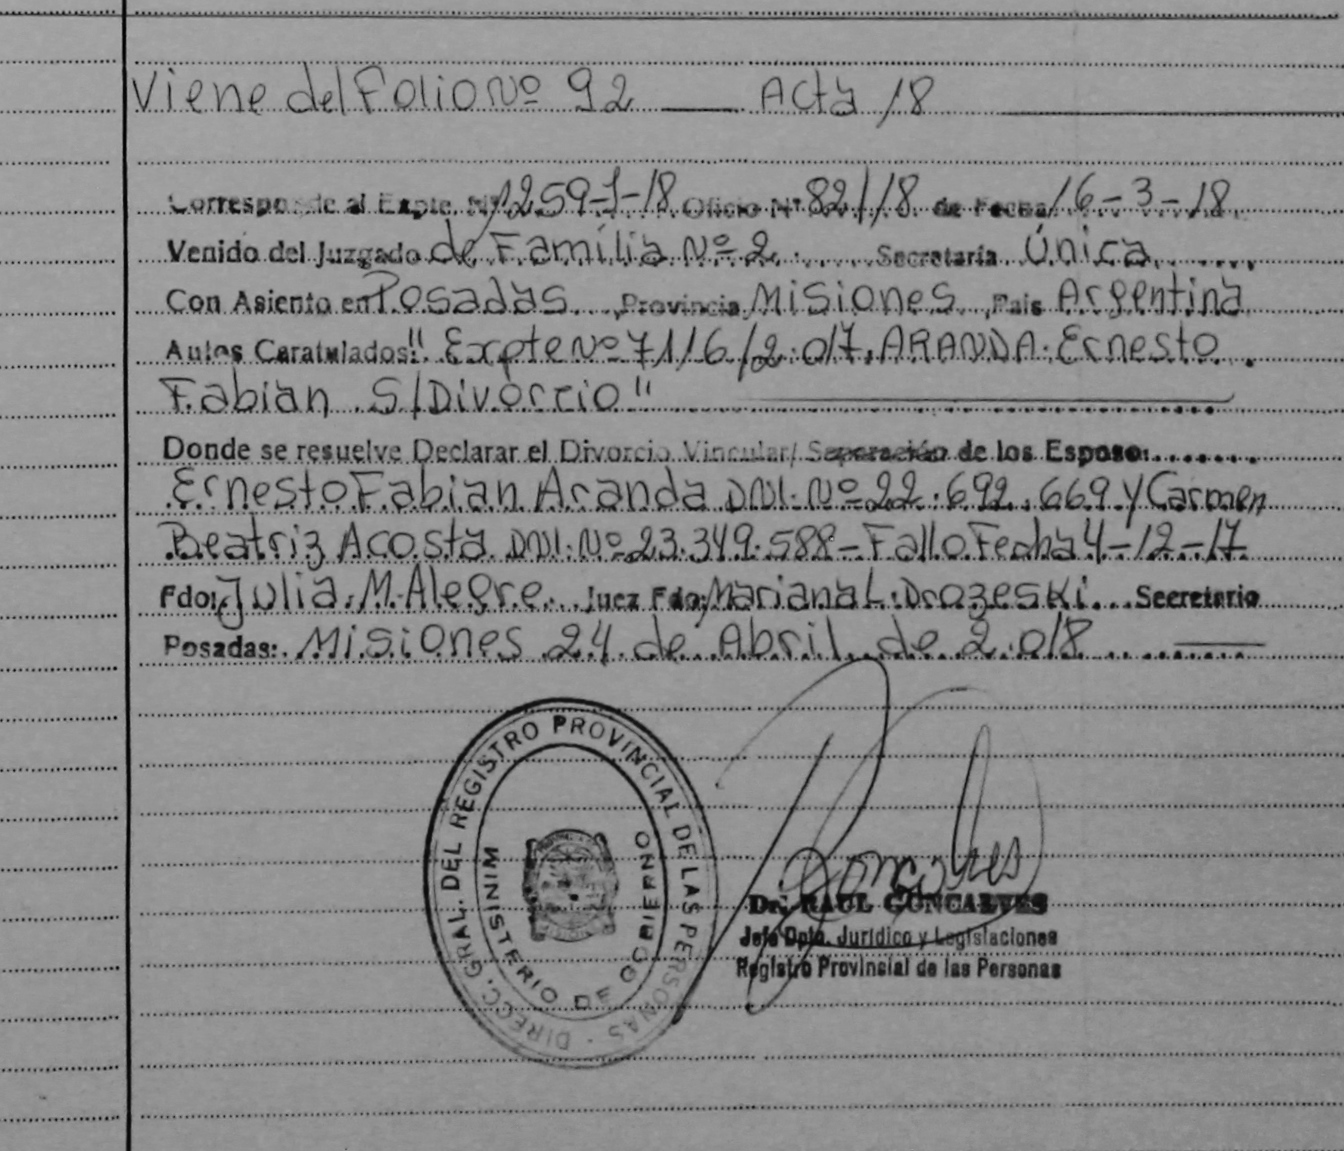 Viene del Folio Nº 92 ___ Acta 18
Corresponde al Expte. Nº 1259-J-18 Oficio Nº 821/18 de Fecha 16-3-18
Venido del Juzgado de Familia Nº 2 Secretaría Única
Con Asiento en Posadas Provincia Misiones País Argentina
Autos Caratulados: "Expte Nº 7116/2.017, ARANDA Ernesto
Fabian S/Divorcio"
Donde se resuelve Declarar el Divorcio Vincular/ Separación de los Esposo:
Ernesto Fabian Aranda DNI. Nº 22.692.669 y Carmen
Beatriz Acosta DNI. Nº 23.349.588- Fallo Fecha 4-12-17
Fdo: Julia M. Alegre. Juez Fdo: Mariana L. Drozeski Secretario
Posadas: Misiones 24 de Abril de 2.018
DIREC. GRAL. DEL REGISTRO PROVINCIAL DE LAS PERSONAS
MINISTERIO DE GOBIERNO
Goncalves
Dr. RAUL GONCALVES
Jefe Dpto. Jurídico y Legislaciones
Registro Provincial de las Personas